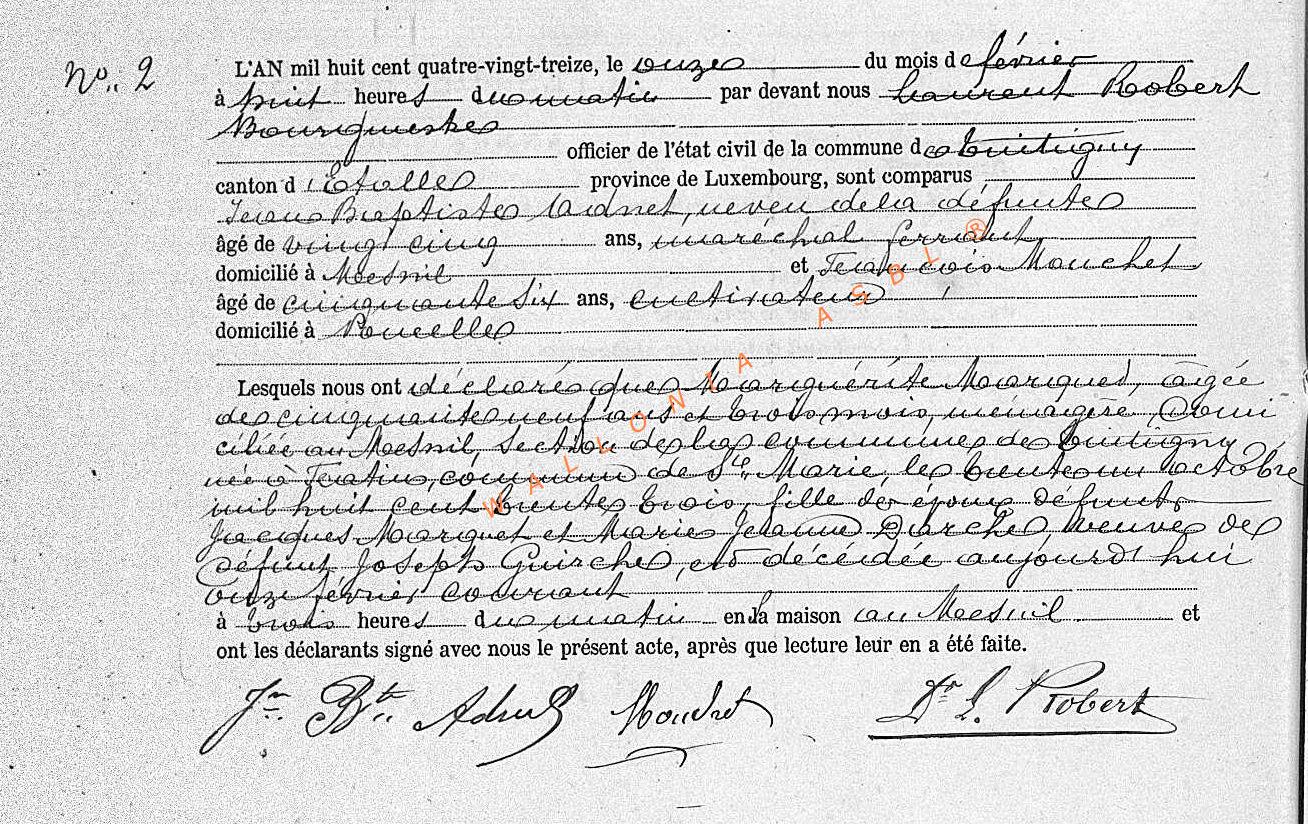 No. 2
L'AN mil huit cent quatre-vingt-treize, le onze du mois de février
à huit heures du matin par devant nous Laurent Robert
Bourgmestre
officier de l'état civil de la commune de Tintigny
canton d'Etalle province de Luxembourg, sont comparus
Jean Baptiste Adnet, neveu de la défunte
âgé de vingt cinq ans, maréchal ferrant
domicilié à Mesnil et François Mouchet
âgé de cinquante six ans, cultivateur
domicilié à Poncelle
Lesquels nous ont déclaré que Marguérite Marquet, agée
de cinquante neuf ans et trois mois, ménagère domi
ciliée au Mesnil, section de la commune de Tintigny
née à Fratin, commune de Ste Marie, le trente un octobre
mil huit cent trente trois, fille des époux défunts
Jacques Marquet et Marie Jeanne veuve de
défunt Joseph Guirche, est décédée aujourd'hui
onze février courant
à trois heures du matin en la maison au Mesnil et
ont les déclarants signé avec nous le présent acte, après que lecture leur en a été faite.
Jn Bte Adnet Dr L. Robert
WALLONIA ASBL ®